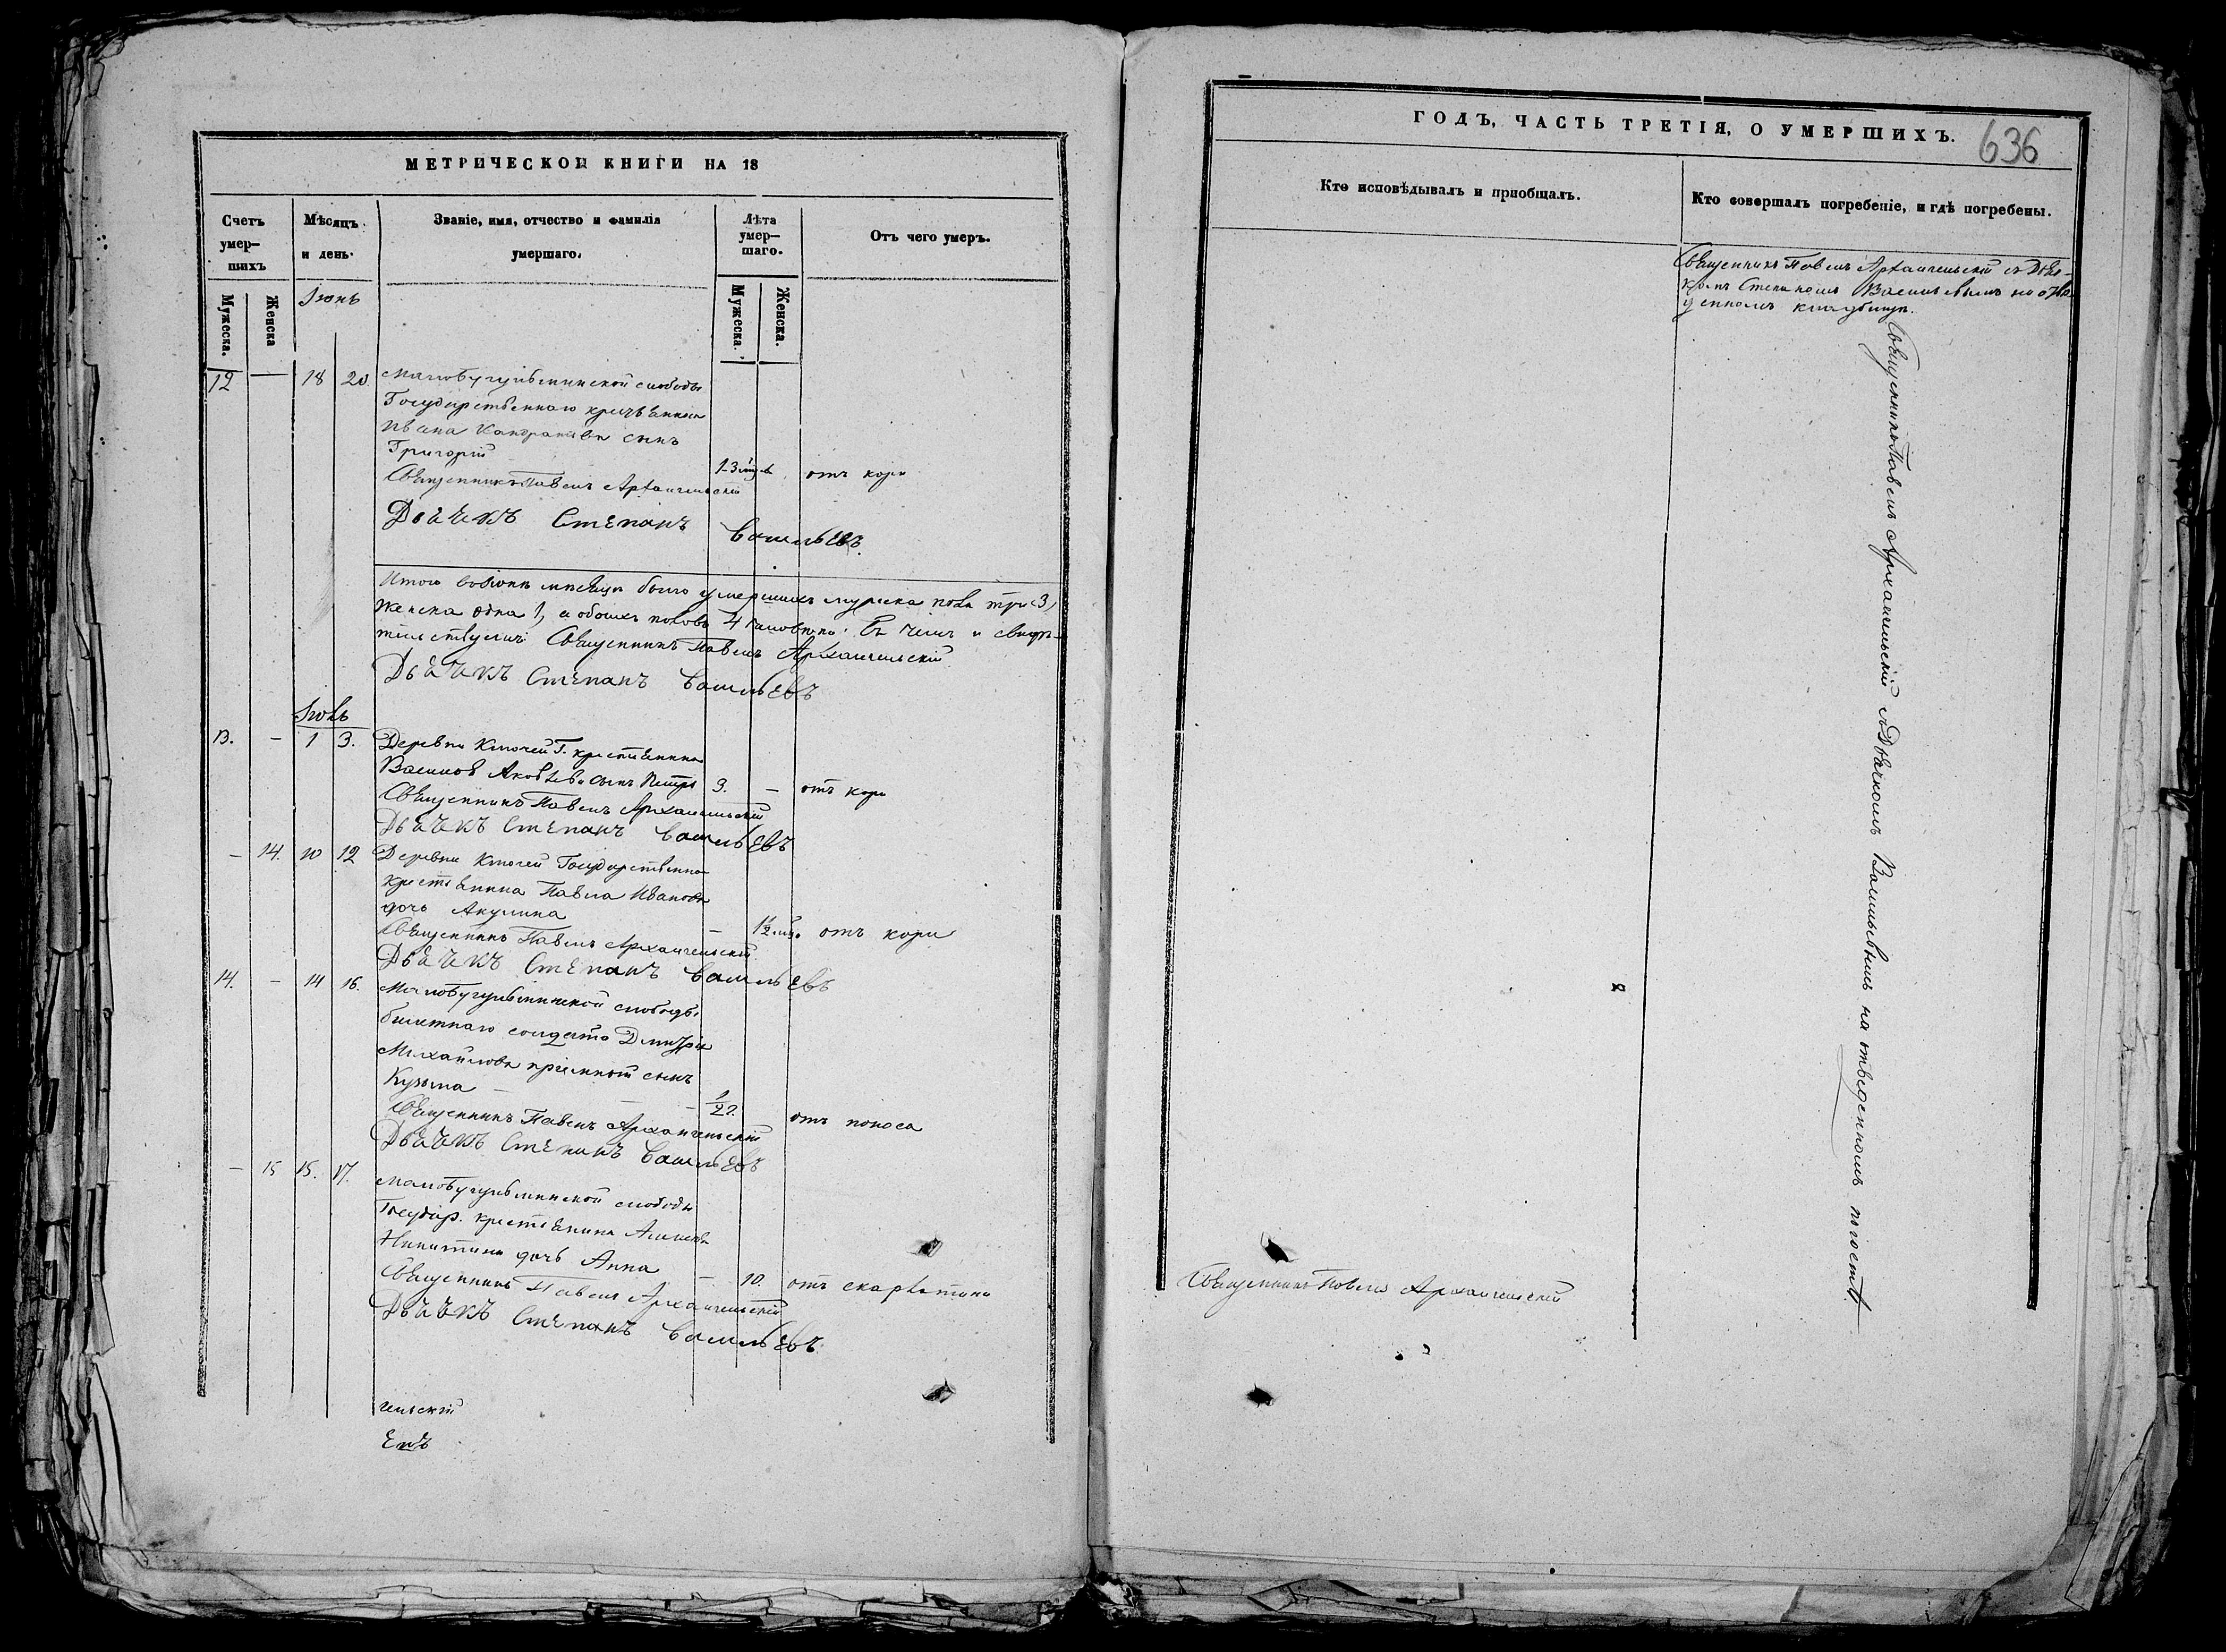 МЕТРИЧЕСКОЙ КНИГИ НА 18
Счетъ умер-шихъ
Мѣсяцъ и день.
Званіе, имя, отчество и фамилія умершаго.
Лѣта умер-шаго.
Отъ чего умеръ.
Мужеска.
Женска
Іюнь
Мужеска.
Женска.
12 — 18 20. Малобугульминской слободы
Государственнаго крестьянина
Ивана сынъ
Григорій
отъ кори
Священникъ Павелъ Архангельскій
Дьячекъ Степанъ Васильевъ.
Итого въ Іюнѣ мѣсяцѣ было умершихъ мужска пола три 3,
женска одна 1, а обоихъ половъ 4 человѣка. Въ чемъ и свидѣ-
тельствуемъ: Священникъ Павелъ Архангельскій
Дьячекъ Степанъ Васильевъ
Іюль
13. — 1 3. Деревни Ключей Г. крестьянина
Василья Яковлева сынъ Петръ 3. — отъ кори
Священникъ Павелъ Архангельскій
Дьячекъ Степанъ Васильевъ
— 14. 10 12 Деревни Ключей Государственна
крестьянина Павла Иванова
дочь Акулина — 1½ отъ кори
Священникъ Павелъ Архангельскій
Дьячекъ Степанъ Васильевъ
14. — 14 16. Малобугульминской слободы
билетнаго солдата Дмитрія
Михайлова пріемный сынъ
Кузьма — ½ отъ поноса
Священникъ Павелъ Архангельскій
Дьячекъ Степанъ Васильевъ
— 15 15. 17. Малобугульминской слободы
Государ. крестьянина
Никитина дочь Анна — 10. отъ скарлатины
Священникъ Павелъ Архангельскій
Дьячекъ Степанъ Васильевъ.
гельскій
ГОДЪ, ЧАСТЬ ТРЕТІЯ, О УМЕРШИХЪ.
636
Кто исповѣдывалъ и пріобщалъ.
Кто совершалъ погребеніе, и гдѣ погребены.
Священникъ Павелъ Архангельскій съ Дьяч-
комъ Степаномъ Васильевымъ на отве-
денномъ кладбищѣ.
Священникъ Павелъ Архангельскій съ Дьячкомъ Васильевымъ на отведенномъ погостѣ.
Священникъ Павелъ Архангельскій